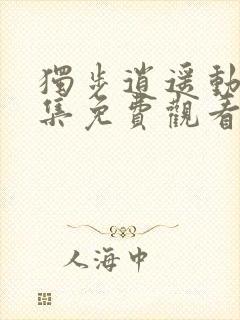 獨步逍遥動
集免費觀看
人海中